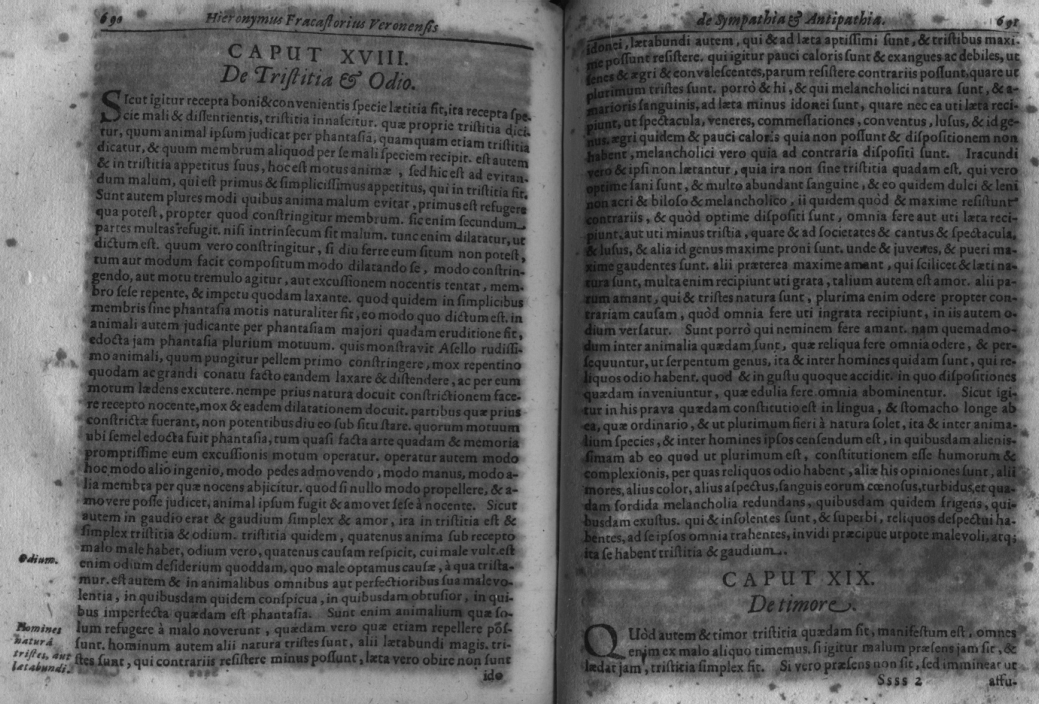 690 Hieronymus Fracastorius Veronensis
CAPUT XVIII.
De Tristitia & Odio.
SIcut igitur recepta boni & convenientis specie lætitia fit, ita recepta spe-
cie mali & dissentientis, tristitia innascitur. quæ proprie tristitia dici-
tur, quum animal ipsum judicat per phantasiā, quamquam etiam tristitia
dicatur, & quum membrum aliquod per se mali speciem recipit. est autem
& in tristitia appetitus suus, hoc est motus animæ, sed hic est ad evitan-
dum malum, qui est primus & simplicissimus appetitus, qui in tristitia fit.
Sunt autem plures modi quibus anima malum evitat, primus est refugere
qua potest, propter quod constringitur membrum. sic enim secundum
partes multas refugit. nisi intrinsecum sit malum. tunc enim dilatatur, ut
dictum est. quum vero constringitur, si diu ferre eum situm non potest,
tum aut modum facit compositum modo dilatando se, modo constrin-
gendo, aut motu tremulo agitur, aut excussionem nocentis tentat, mem-
bro sese repente, & impetu quodam laxante. quod quidem in simplicibus
membris sine phantasia motis naturaliter fit, eo modo quo dictum est. in
animali autem judicante per phantasiam majori quadam eruditione fit,
edocta jam phantasia plurium motuum. quis monstravit Asello rudissi-
mo animali, quum pungitur pellem primo constringere, mox repentino
quodam ac grandi conatu facto eandem laxare & distendere, ac per eum
motum lædens excutere. nempe prius natura docuit constrictionem face-
re recepto nocente, mox & eadem dilatationem docuit. partibus quæ prius
constrictæ fuerant, non potentibus diu eo sub situ stare. quorum motuum
ubi semel edocta fuit phantasia, tum quasi facta arte quadam & memoria
promptissime eum excussionis motum operatur. operatur autem modo
hoc modo alio ingenio, modo pedes admovendo, modo manus, modo a-
lia membra per quæ nocens abjicitur. quod si nullo modo propellere, & a-
movere posse judicet, animal ipsum fugit & amovet sese à nocente. Sicut
autem in gaudio erat & gaudium simplex & amor, ita in tristitia est &
simplex tristitia & odium. tristitia quidem, quatenus anima sub recepto
malo male habet, odium vero, quatenus causam respicit, cui male vult. est
Odium.
enim odium desiderium quoddam, quo male optamus causæ, à qua trista-
mur. est autem & in animalibus omnibus aut perfectioribus sua malevo-
lentia, in quibusdam quidem conspicua, in quibusdam obtusior, in qui-
bus imperfecta quædam est phantasia. Sunt enim animalium quæ so-
Homines naturâ tristes, aut lætabundi.
lum refugere à malo noverunt, quædam vero quæ etiam repellere pos-
sunt. hominum autem alii natura tristes sunt, alii lætabundi magis. tri-
stes sunt, qui contrariis resistere minus possunt, læta vero obire non sunt
ido
de Sympathia & Antipathia. 691
idonei, lætabundi autem, qui & ad læta aptissimi sunt, & tristibus maxi-
me possunt resistere. qui igitur pauci caloris sunt & exangues ac debiles, ut
senes & ægri & convalescentes, parum resistere contrariis possunt, quare ut
plurimum tristes sunt. porrò & hi, & qui melancholici natura sunt, & a-
marioris sanguinis, ad læta minus idonei sunt, quare nec ea uti læta reci-
piunt, ut spectacula, veneres, commessationes, conventus, lusus, & id ge-
nus. ægri quidem & pauci caloris quia non possunt & dispositionem non
habent, melancholici vero quia ad contraria dispositi sunt. Iracundi
vero & ipsi non lætantur, quia ira non sine tristitia quadam est. qui vero
optime sani sunt, & multo abundant sanguine, & eo quidem dulci & leni
non acri & biloso & melancholico, ii quidem quòd & maxime resistunt
contrariis, & quòd optime dispositi sunt, omnia fere aut uti læta reci-
piunt, aut uti minus tristia, quare & ad societates & cantus & spectacula,
& lusus, & alia id genus maxime proni sunt. unde & juvenes, & pueri ma-
xime gaudentes sunt. alii præterea maxime amant, qui scilicet & læti na-
tura sunt, multa enim recipiunt uti grata, talium autem est amor. alii pa-
rum amant, qui & tristes natura sunt, plurima enim odere propter con-
trariam causam, quòd omnia fere uti ingrata recipiunt, in iis autem o-
dium versatur. Sunt porrò qui neminem fere amant. nam quemadmo-
dum inter animalia quædam sunt, quæ reliqua fere omnia odere, & per-
sequuntur, ut serpentum genus, ita & inter homines quidam sunt, qui re-
liquos odio habent. quod & in gustu quoque accidit. in quo dispositiones
quædam inveniuntur, quæ edulia fere omnia abominentur. Sicut igi-
tur in his prava quædam constitutio est in lingua, & stomacho longe ab
ea, quæ ordinario, & ut plurimum fieri à natura solet, ita & inter anima-
lium species, & inter homines ipsos censendum est, in quibusdam alienis-
simam ab eo quod ut plurimum est, constitutionem esse humorum &
complexionis, per quas reliquos odio habent, aliæ his opiniones sunt, alii
mores, alius color, alius aspectus, sanguis eorum cœnosus, turbidus, et quæ-
dam sordida melancholia redundans, quibusdam quidem frigens, qui-
busdam exustus. qui & insolentes sunt, & superbi, reliquos despectui ha-
bentes, ad se ipsos omnia trahentes, invidi præcipue utpote malevoli, atq;
ita se habent tristitia & gaudium.
CAPUT XIX.
De timore.
QUòd autem & timor tristitia quædam sit, manifestum est, omnes
enim ex malo aliquo timemus. si igitur malum præsens jam sit, &
lædat jam, tristitia simplex fit. Si vero præsens non sit, sed immineat ut
Ssss 2 affu-